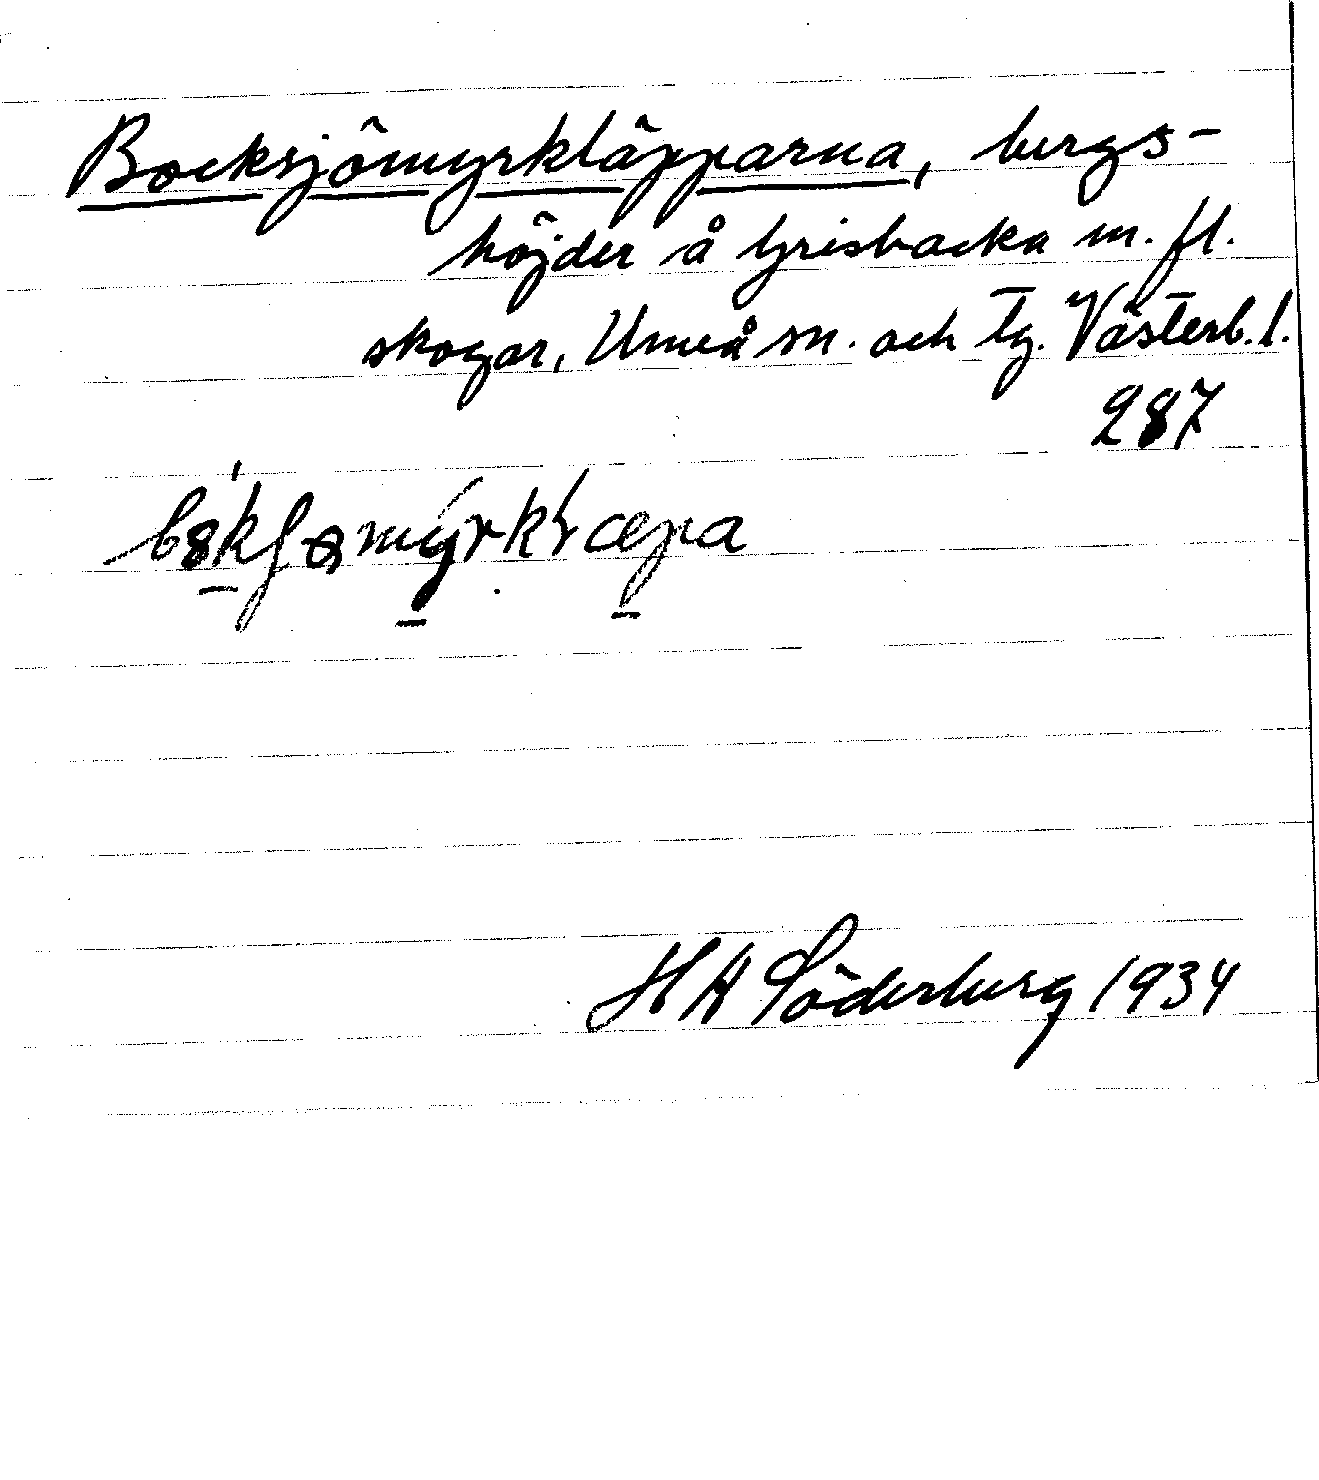 Bocksjömyrkläpparna, bergs-
höjder å Grisbacka m. fl.
skogar, Umeå sn. och tg. Västerb. l.
287
H A Söderberg 1934